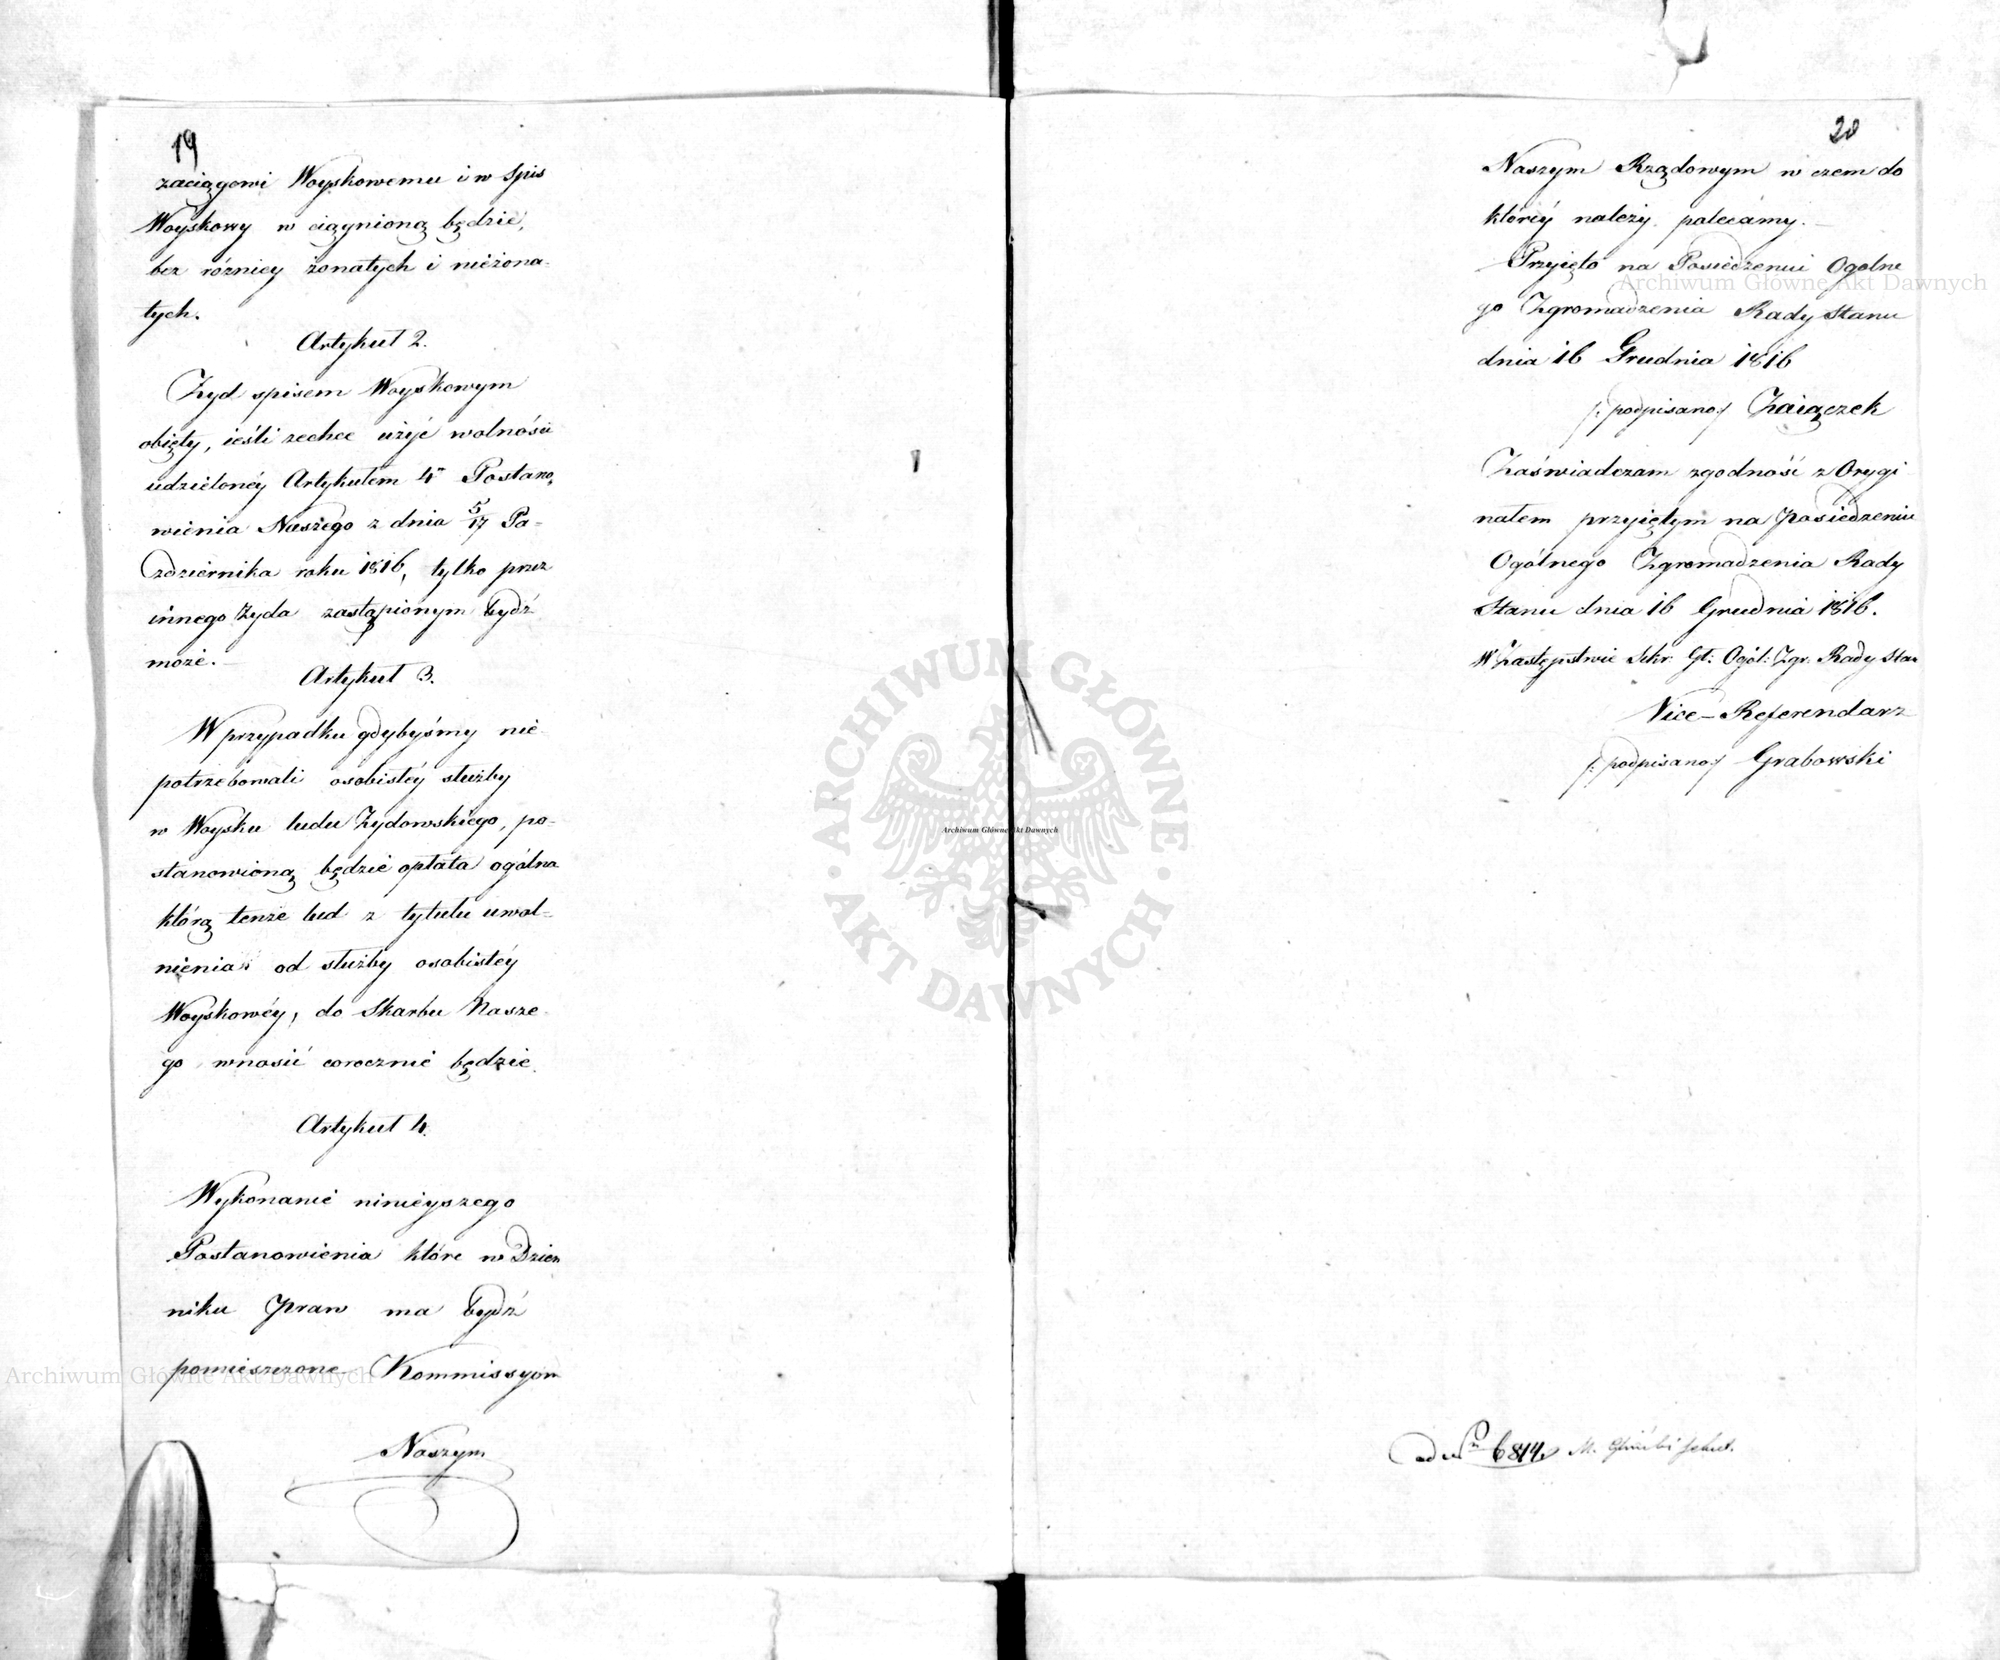 19
zaciągowi Woyskowemu i w Spis
Woyskowy w ciągnioną będzie,
bez różnicy żonatych i nieżona-
tych.
Artykuł 2.
Żyd spisem Woyskowym
obięty, ieśli zechce użyć wolności
udzielonéy Artykułem 4m Postano-
wienia Naszego z dnia 5/17 Pa-
ździernika roku 1816, tylko przez
innego Żyda zastąpionym bydź
może.
Artykuł 3.
W przypadku gdybyśmy nie
potrzebowali osobistéy służby
w Woysku ludu Żydowskiego, po-
stanowioną będzie opłata ogólna
którą tenże lud z tytułu uwol-
nienia od służby osobistéy
Woyskowéy, do Skarbu Nasze-
go wnosić corocznie będzie.
Artykuł 4.
Wykonanie ninieyszego
Postanowienia które w Dzien
niku Praw ma bydź
pomieszczone Kommissyom
Naszym
20
Naszym Rządowym w czem do
któréy należy polecamy. —
Przyięto na Posiedzeniu Ogólne
go Zgromadzenia Rady Stanu
dnia 16 Grudnia 1816
/: podpisano :/ Zaiączek
Zaświadczam zgodność z Orygi
nałem przyiętym na Posiedzeniu
Ogólnego Zgromadzenia Rady
Stanu dnia 16 Grudnia 1816.
W Zastępstwie Sekr: Gł: Ogól: Zgr: Rady Stan
Vice-Referendarz
/: podpisano :/ Grabowski
ad Nm 6814
Archiwum Główne Akt Dawnych
Archiwum Główne Akt Dawnych
Archiwum Główne Akt Dawnych
ARCHIWUM GŁÓWNE
AKT DAWNYCH